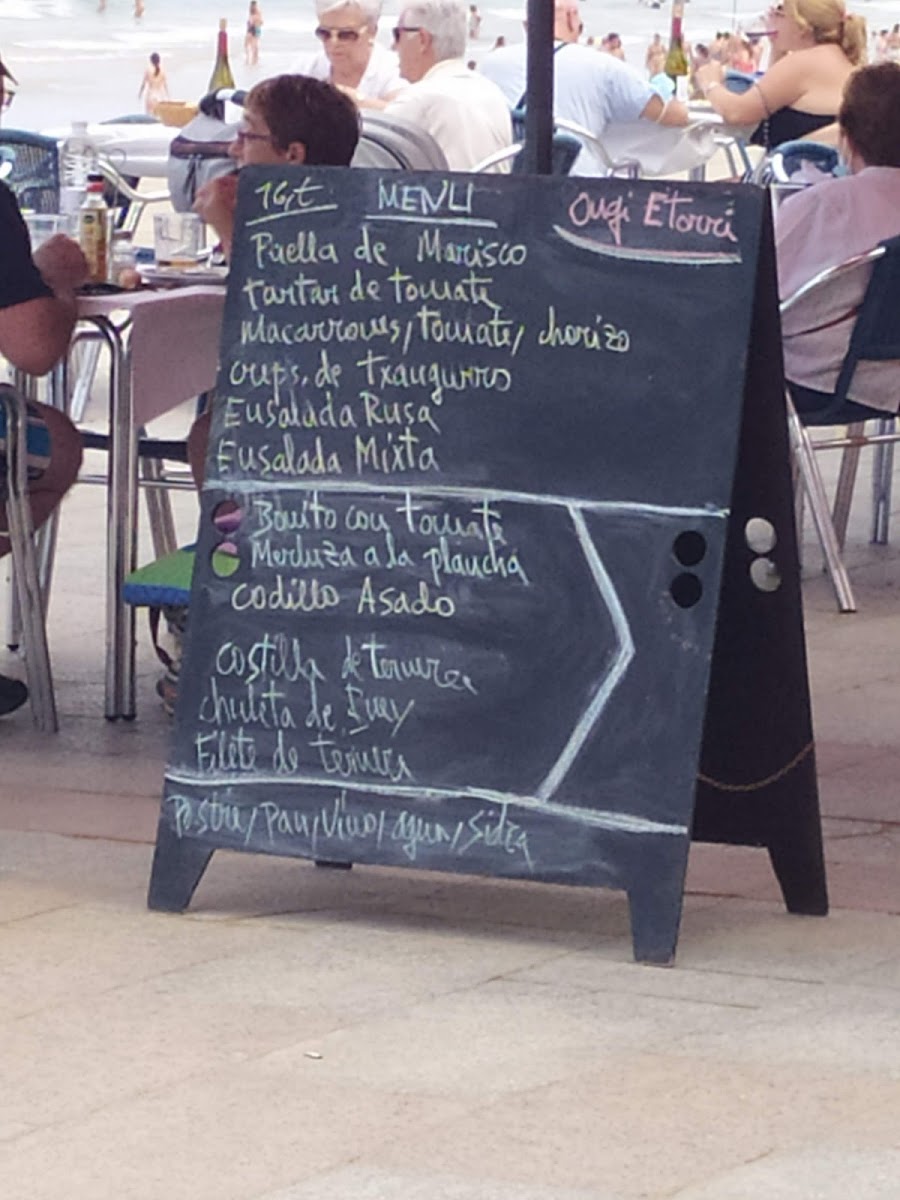 16,€ MENU Ongi Etorri
Paella de Marisco
tartar de tomate
Macarrones/tomate/ chorizo
creps. de Txangurro
Ensalada Rusa
Ensalada Mixta
Bonito con tomate
Merluza a la plancha
codillo Asado
costilla de ternera
chuleta de Buey
Filete de ternera
Postre/Pan/Vino/agua/Sidra